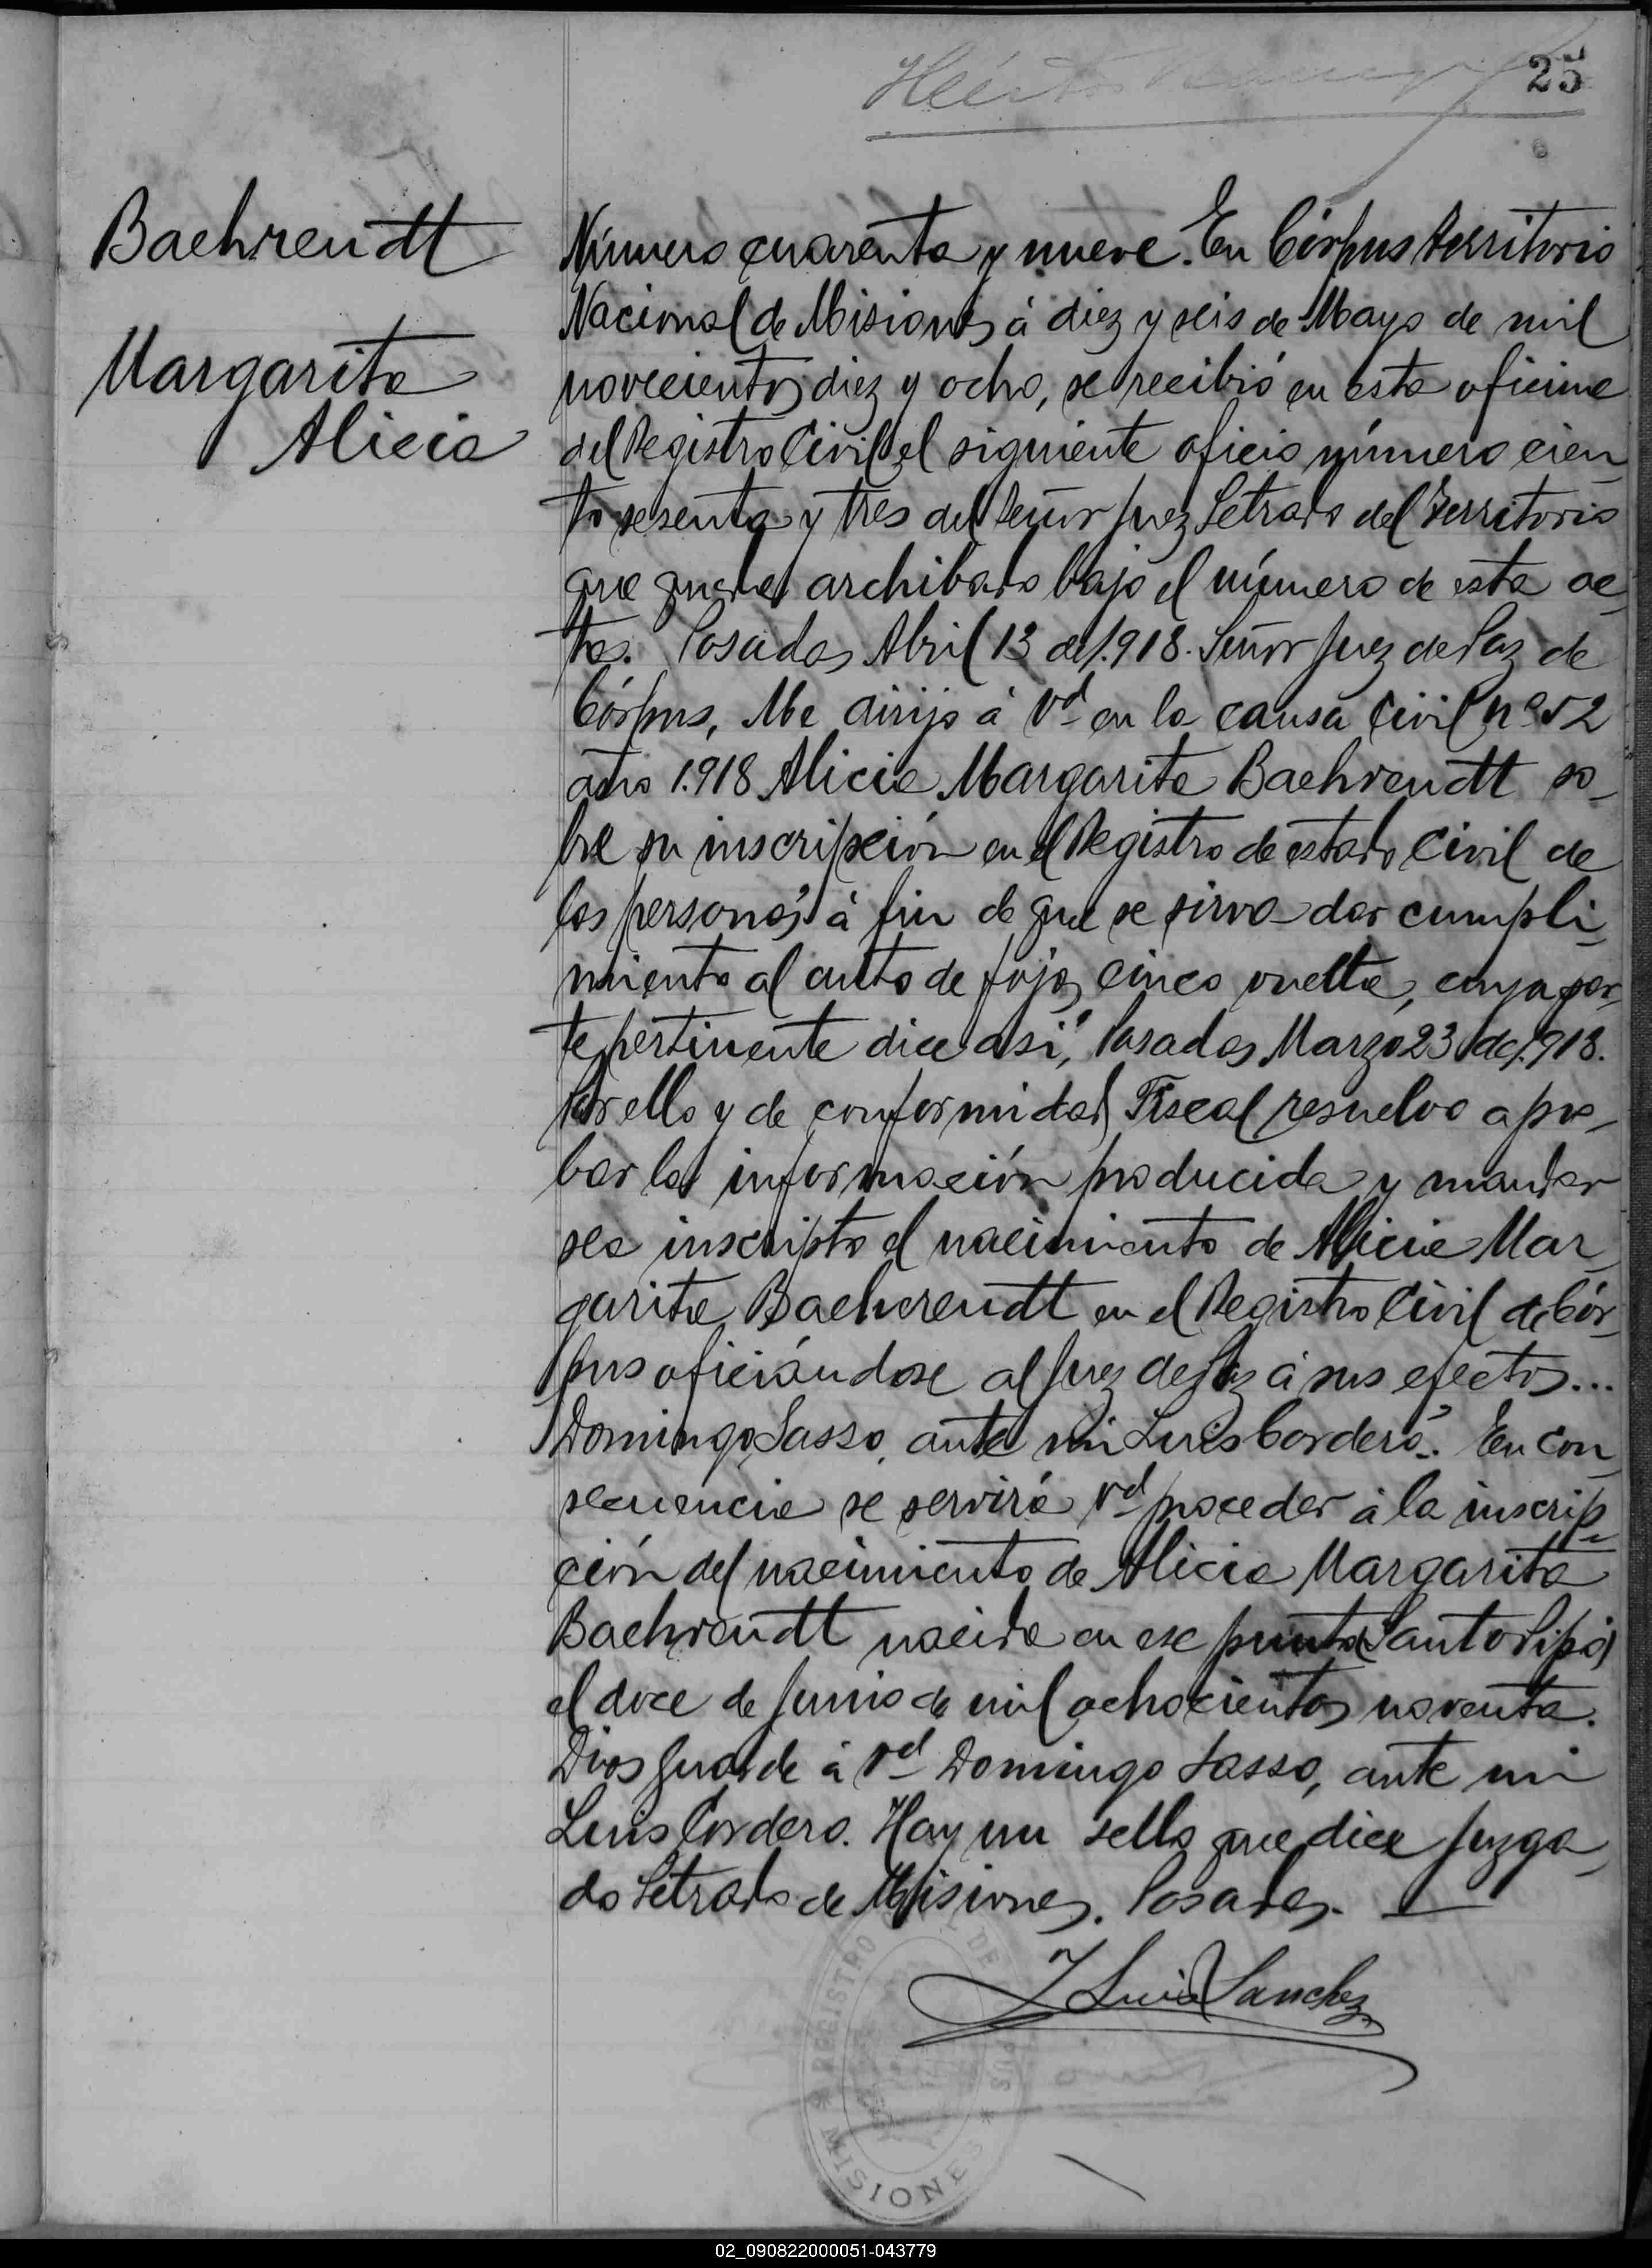 25
Héctor
Baehrendt
Margarita
Alicia
Número cuarenta y nueve. En Córpus territorio
Nacional de Misiones, á diez y seis de Mayo de mil
novecientos diez y ocho, se recibió en esta oficina
del Registro Civil el siguiente oficio número cien_
to sesenta y tres del Señor Juez Letrado del Territorio
que queda archibado bajo el número de esta ac_
ta. Posadas, Abril 13 de 1.918. Señor Juez de Paz de
Córpus, Me dirijo á Vd en la causa civil nº 52
año 1.918 Alicia Margarita Baehrendt so_
bre su inscripción en el Registro de estado Civil de
las personas, á fin de que se sirva dar cumpli_
miento al auto de fojas cinco vuelta, cuya par_
te pertinente dice asi, Posadas, Marzo 23 de 1.918.
Por ello y de conformidad Fiscal resuelvo apro_
bar la información producida y mandar
sea inscripto el nacimiento de Alicia Mar_
garita Baehrendt en el Registro Civil de Cór_
pus oficiándose al Juez de Paz á sus efectos...
Domingo Sasso, ante mi Luis Cordero. En con_
secuencia se servirá Vd proceder á la inscrip_
ción del nacimiento de Alicia Margarita
Baehrendt nacida en ese punto (Santo Pipó)
el doce de Junio de mil ochocientos noventa.
Dios guarde á Vd Domingo Sasso, ante mi
Luis Cordero. Hay un sello que dice Juzga_
do Letrado de Misiones. Posadas. —
J Luis Sanchez
REGISTRO DE
MISIONES
02_090822000051-043779